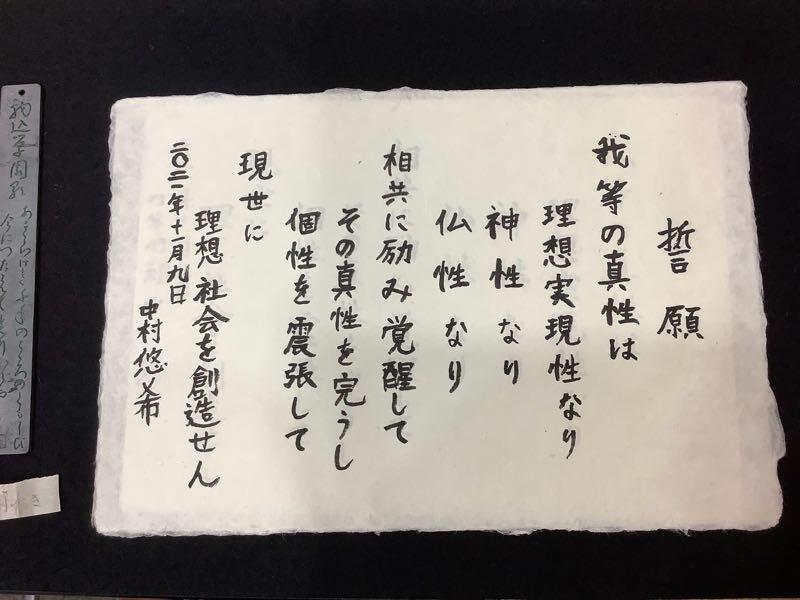 誓願
我等の真性は
理想実現性なり
神性なり
仏性なり
相共に励み覚醒して
その真性を完うし
個性を震張して
現世に
理想社会を創造せん
二〇二一年十一月九日
中村悠希
駒込学園